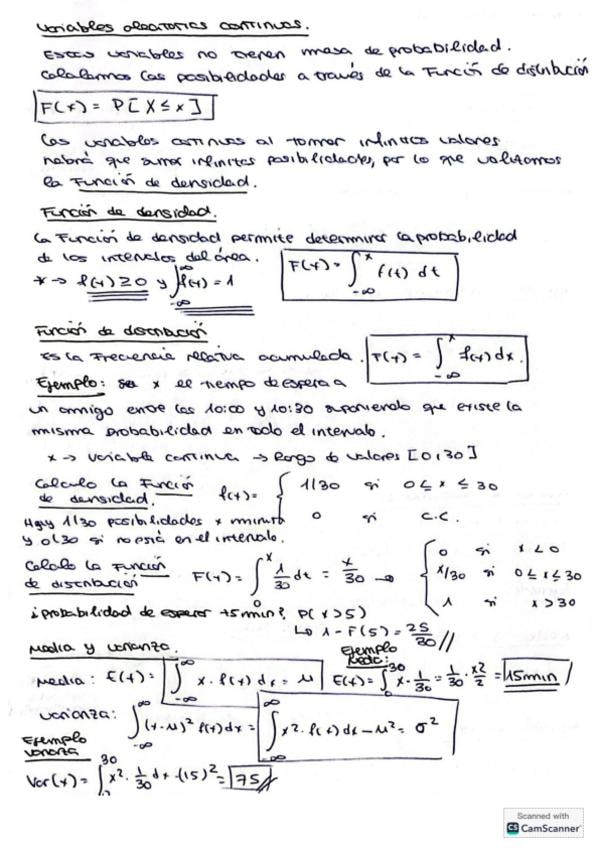 Variables aleatorias continuas.
Estas variables no tienen masa de probabilidad.
Calculamos las posibilidades a través de la Función de distribución
F(x) = P[X ≤ x]
Las variables continuas al tomar infinitos valores
habrá que sumar infinitas posibilidades, por lo que utilizamos
la Función de densidad.
Función de densidad.
La Función de densidad permite determinar la probabilidad
de los intervalos del área. F(x) = ∫_{-∞}^{x} f(t) dt
* → f(x) ≥ 0 y ∫_{-∞}^{∞} f(x) = 1
Función de distribución
Es la Frecuencia relativa acumulada. F(x) = ∫_{-∞}^{x} f(x) dx.
Ejemplo: x el tiempo de espera a
un amigo entre las 10:00 y 10:30 suponiendo que existe la
misma probabilidad en todo el intervalo.
x → variable continua → Rango de valores [0,30]
Calculo la Función de densidad. f(x) = { 1/30 si 0 ≤ x ≤ 30
0 si c.c.
Hay 1/30 posibilidades x minuto
y 0/30 si no está en el intervalo.
Calculo la Función de distribución F(x) = ∫_{0}^{x} 1/30 dt = x/30 → { 0 si x < 0
x/30 si 0 ≤ x ≤ 30
1 si x > 30
¿Probabilidad de esperar +5min? P(x > 5)
↳ 1 - F(5) = 25/30 //
Media y varianza. Ejemplo Media:
Media: E(x) = ∫_{-∞}^{∞} x · f(x) dx = μ E(x) = ∫_{0}^{30} x · 1/30 = 1/30 · x²/2 = 15min
Varianza: ∫_{-∞}^{∞} (x-μ)² f(x) dx = ∫_{-∞}^{∞} x² · f(x) dx - μ² = σ²
Ejemplo varianza
Var(x) = ∫^{30} x² · 1/30 dx - (15)² = 75 //
Scanned with
CS CamScanner